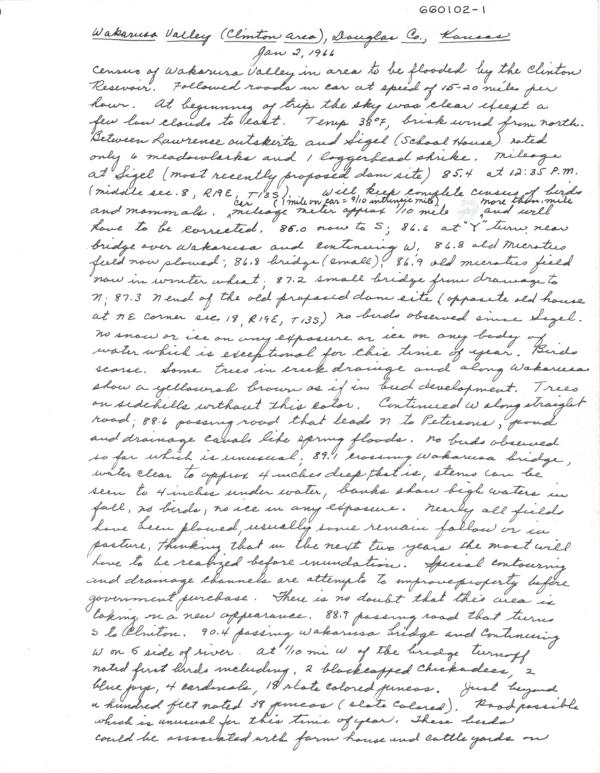 660102-1
Wakarusa Valley (Clinton area), Douglas Co., Kansas
Jan 2, 1966
Census of Wakarusa Valley in area to be flooded by the Clinton
Resevoir. Followed roads in car at speed of 15-20 miles per
hour. At beginning of trip the sky was clear except a
few low clouds to east. Temp 38°F, brisk wind from north.
Between Lawrence outskirts and Sigel (School House) noted
only 6 meadowlarks and 1 loggerhead shrike. Mileage
at Sigel (most recently proposed dam site) 85.4 at 12:35 P.M.
(middle sec. 8, R19E, T13S). Will keep complete census of birds
and mammals. car mileage meter approx 1/10 mile (1 mile on car = 9/10 intrinsic mile) more than mile and will
have to be corrected. 86.0 now to S; 86.6 at "Y" turn near
bridge over Wakarusa and continuing W. 86.8 old Microtus
field now plowed; 86.8 bridge (small); 86.9 old microtus field
now in winter wheat; 87.2 small bridge from drainage to
N; 87.3 N end of the old proposed dam site (opposite old house
at NE corner sec. 18, R19E, T13S) no birds observed since Sigel.
No snow or ice on any exposure or ice on any body of
water which is exceptional for this time of year. Birds
scarse. Some trees in creek drainage and along Wakarusa
show a yellowish brown as if in bud development. Trees
on sidehills without this color. Continued W along straight
road; 88.6 passing road that leads N to Petersons, pond
and drainage canals like spring floods. No birds observed
so far which is unusual; 89.1 crossing Wakarusa bridge,
water clear to approx 4 inches deep, that is, stems can be
seen to 4 inches under water, banks show high waters in
fall, no birds, no ice in any exposure. Nearly all fields
have been plowed, usually some remain fallow or in
pasture, thinking that in the next two years the most will
have to be realized before inundation. Special contouring
and drainage channels are attempts to improve property before
government purchase. There is no doubt that this area is
taking on a new appearance. 88.9 passing road that turns
S to Clinton. 90.4 passing Wakarusa bridge and continuing
W on S side of river. At 1/10 mi W of the bridge turnoff
noted first birds including, 2 blackcapped Chickadees, 2
blue jays, 4 cardinals, 18 slate colored juncos. Just beyond
a hundred feet noted 38 juncos (slate colored). Road passible
which is unusual for this time of year. These birds
could be associated with farm house and cattle yards on